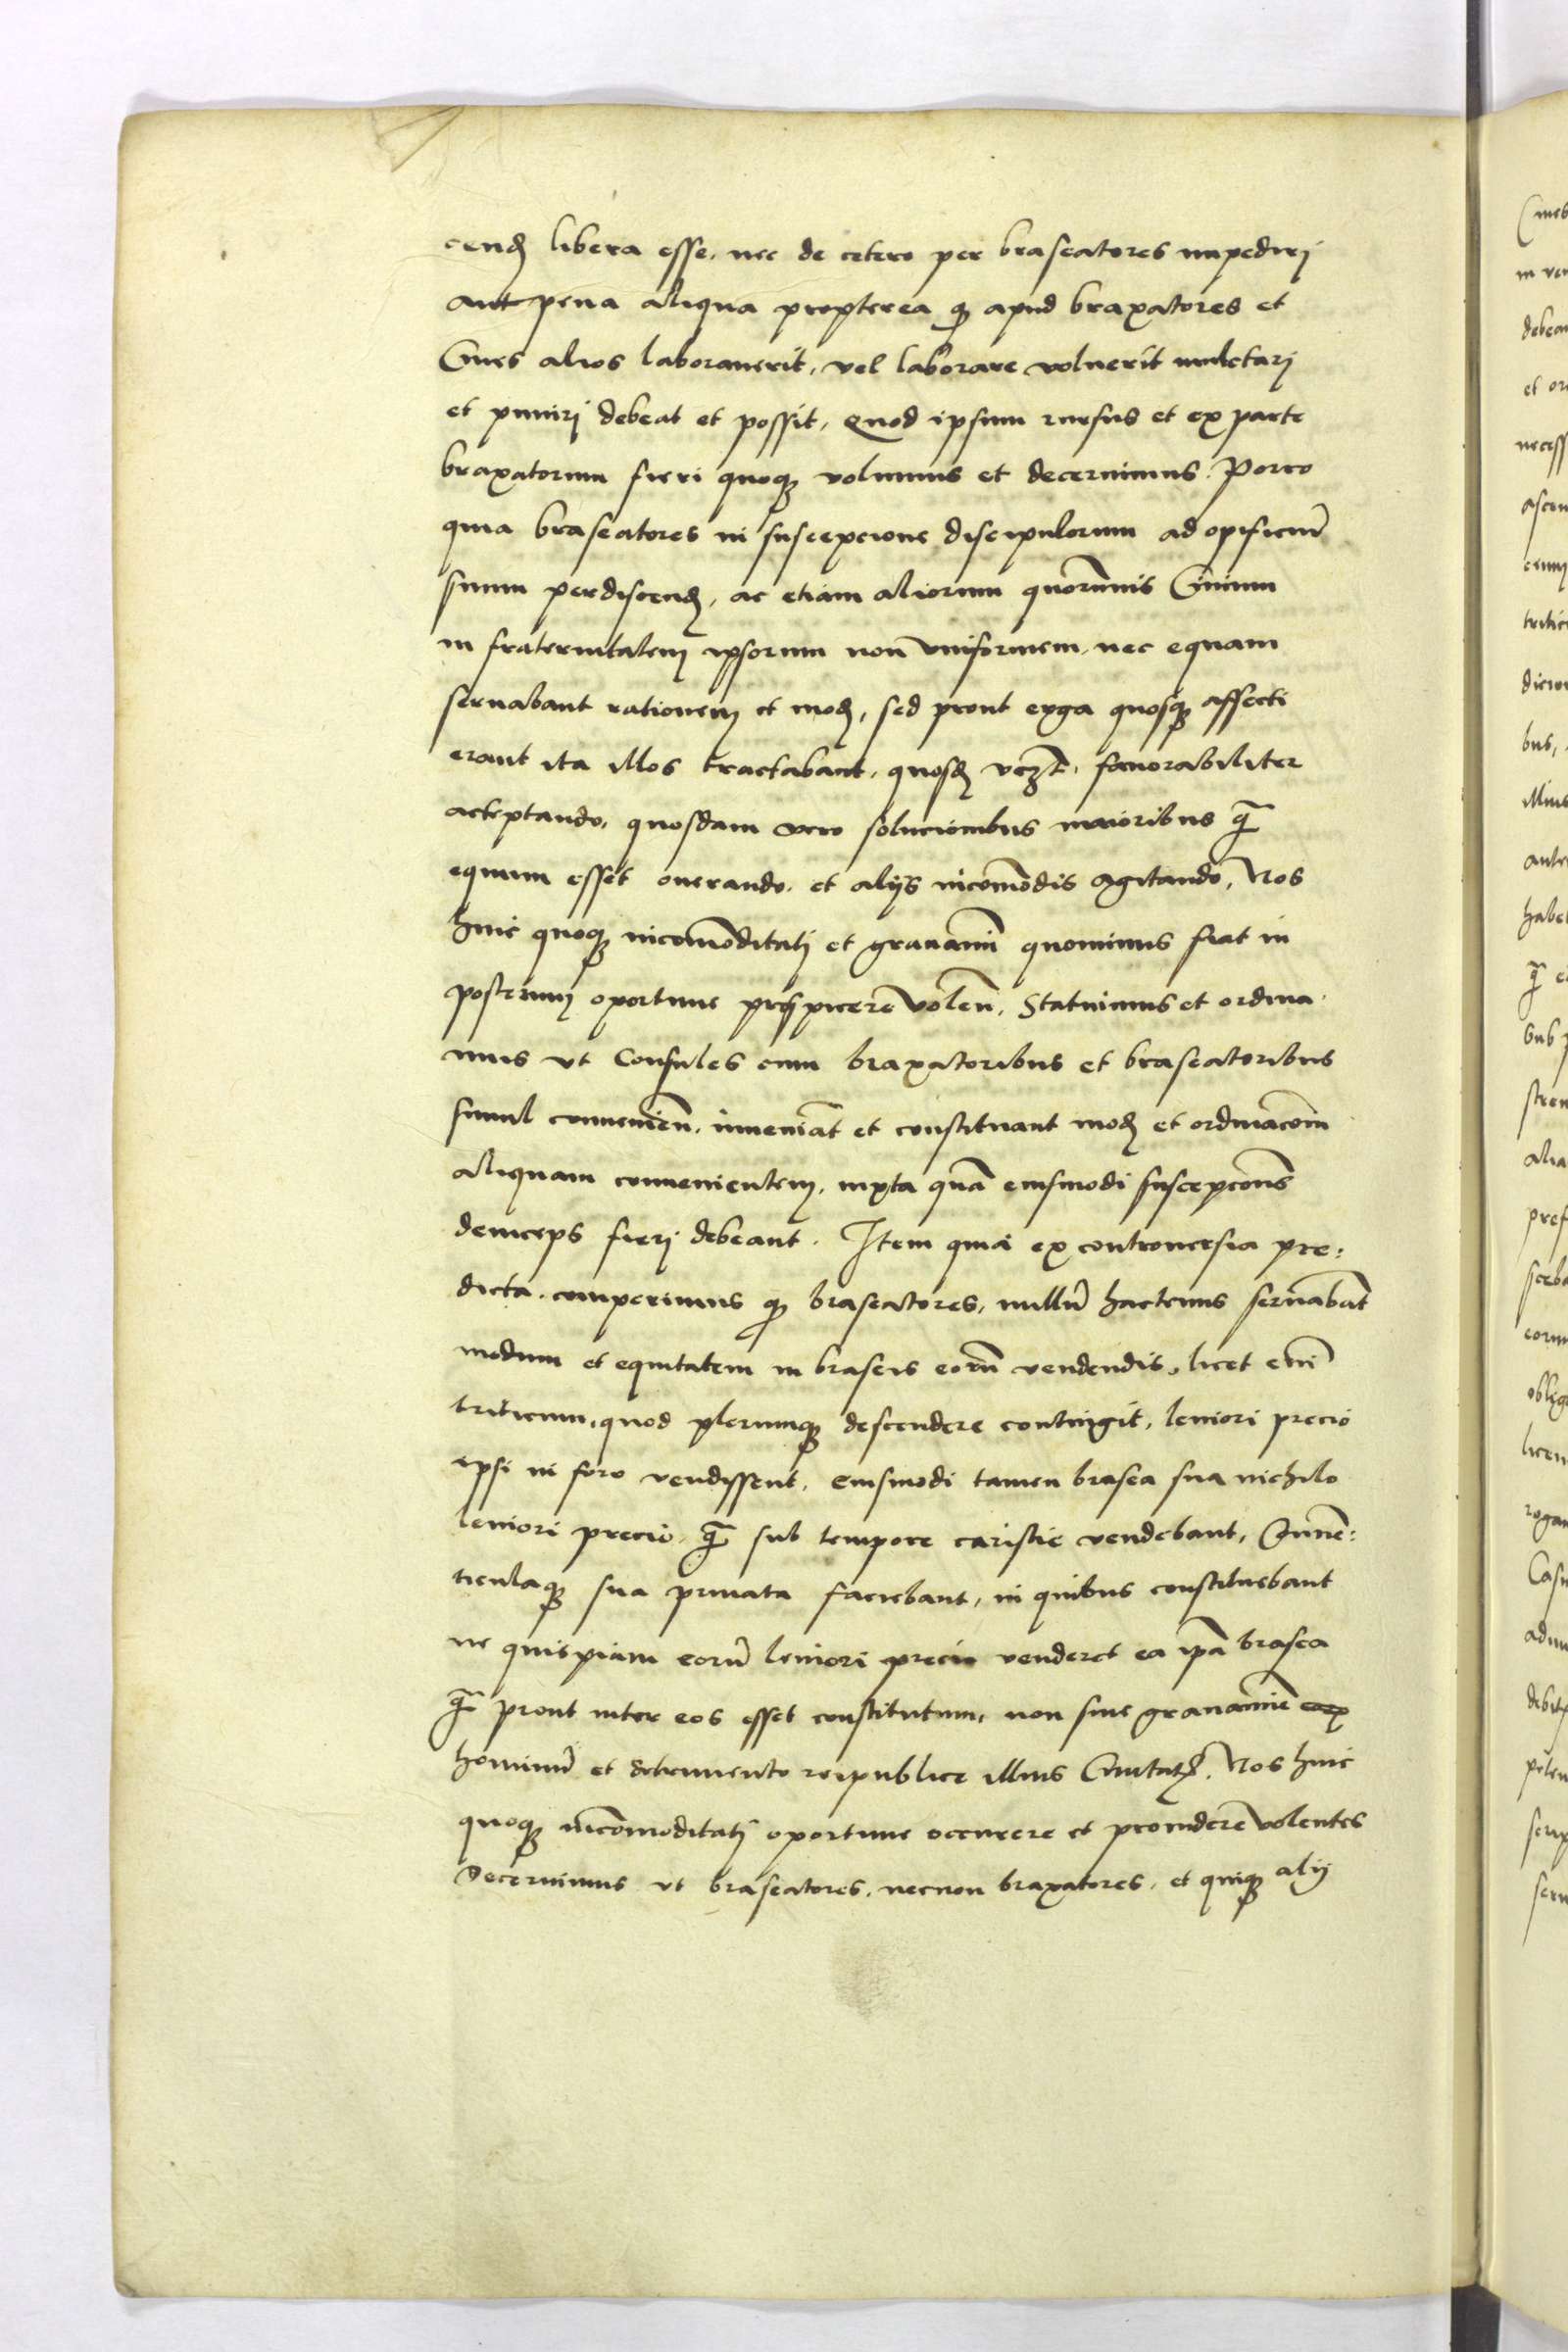 cend libera esse, nec de cetero per braseatores impediri
aut pena aliqua propterea q apud braxatores et
Ciues alios laborauerit, vel laborare voluerit mulctari
et puniri debeat et possit, Quod ipsum rursus et ex parte
braxatorum fieri quoq volumus et decernimus. Porro
quia braseatores in suscepcione discipulorum ad opificiu
suum perdiscend, ac etiam aliorum quorumuis Ciuium
in fraternitatem ipsorum non vniformem, nec equam
seruabant rationem et mod, sed prout erga quosq affecti
erant ita illos tractabant, quosd vczt fauorabiliter
acceptando, quosdam vero solucionibus maioribus q
equum esset onerando, et alijs incomodis agitando, Nos
huic quoq incomoditati et grauami quominus fiat in
posterum oportune prospicere volen, Statuimus et ordina
mus vt Consules cum braxatoribus et braseatoribus
simul conuenien, inueniat et constituant mod et ordinacom
aliquam conuenientem, iuxta qua eiusmodi suscepcons
deinceps fieri debeant. Item quia ex controuersia pre:
dicta comperimus q braseatores, nullu hactenus seruabat
modum et equitatem in braseis eoru vendendis, licet eni
triticum, quod plerumq descendere contingit, leuiori precio
ipsi in foro vendissent, eiusmodi tamen brasea sua nichilo
leuiori precio q sub tempore caristie vendebant, Conuen:
ticulaq sua priuata faciebant, in quibus constituebant
ne quispiam eoru leuiori precio venderet ea ipa brasea
q prout inter eos esset constitutum, non sine grauamie
hominu et detrimento reipublice illius Ciuitat. Nos huic
quoq incomoditati oportune occurrere et prouidere volentes
Decernimus vt braseatores, necnon braxatores, et quiq alij